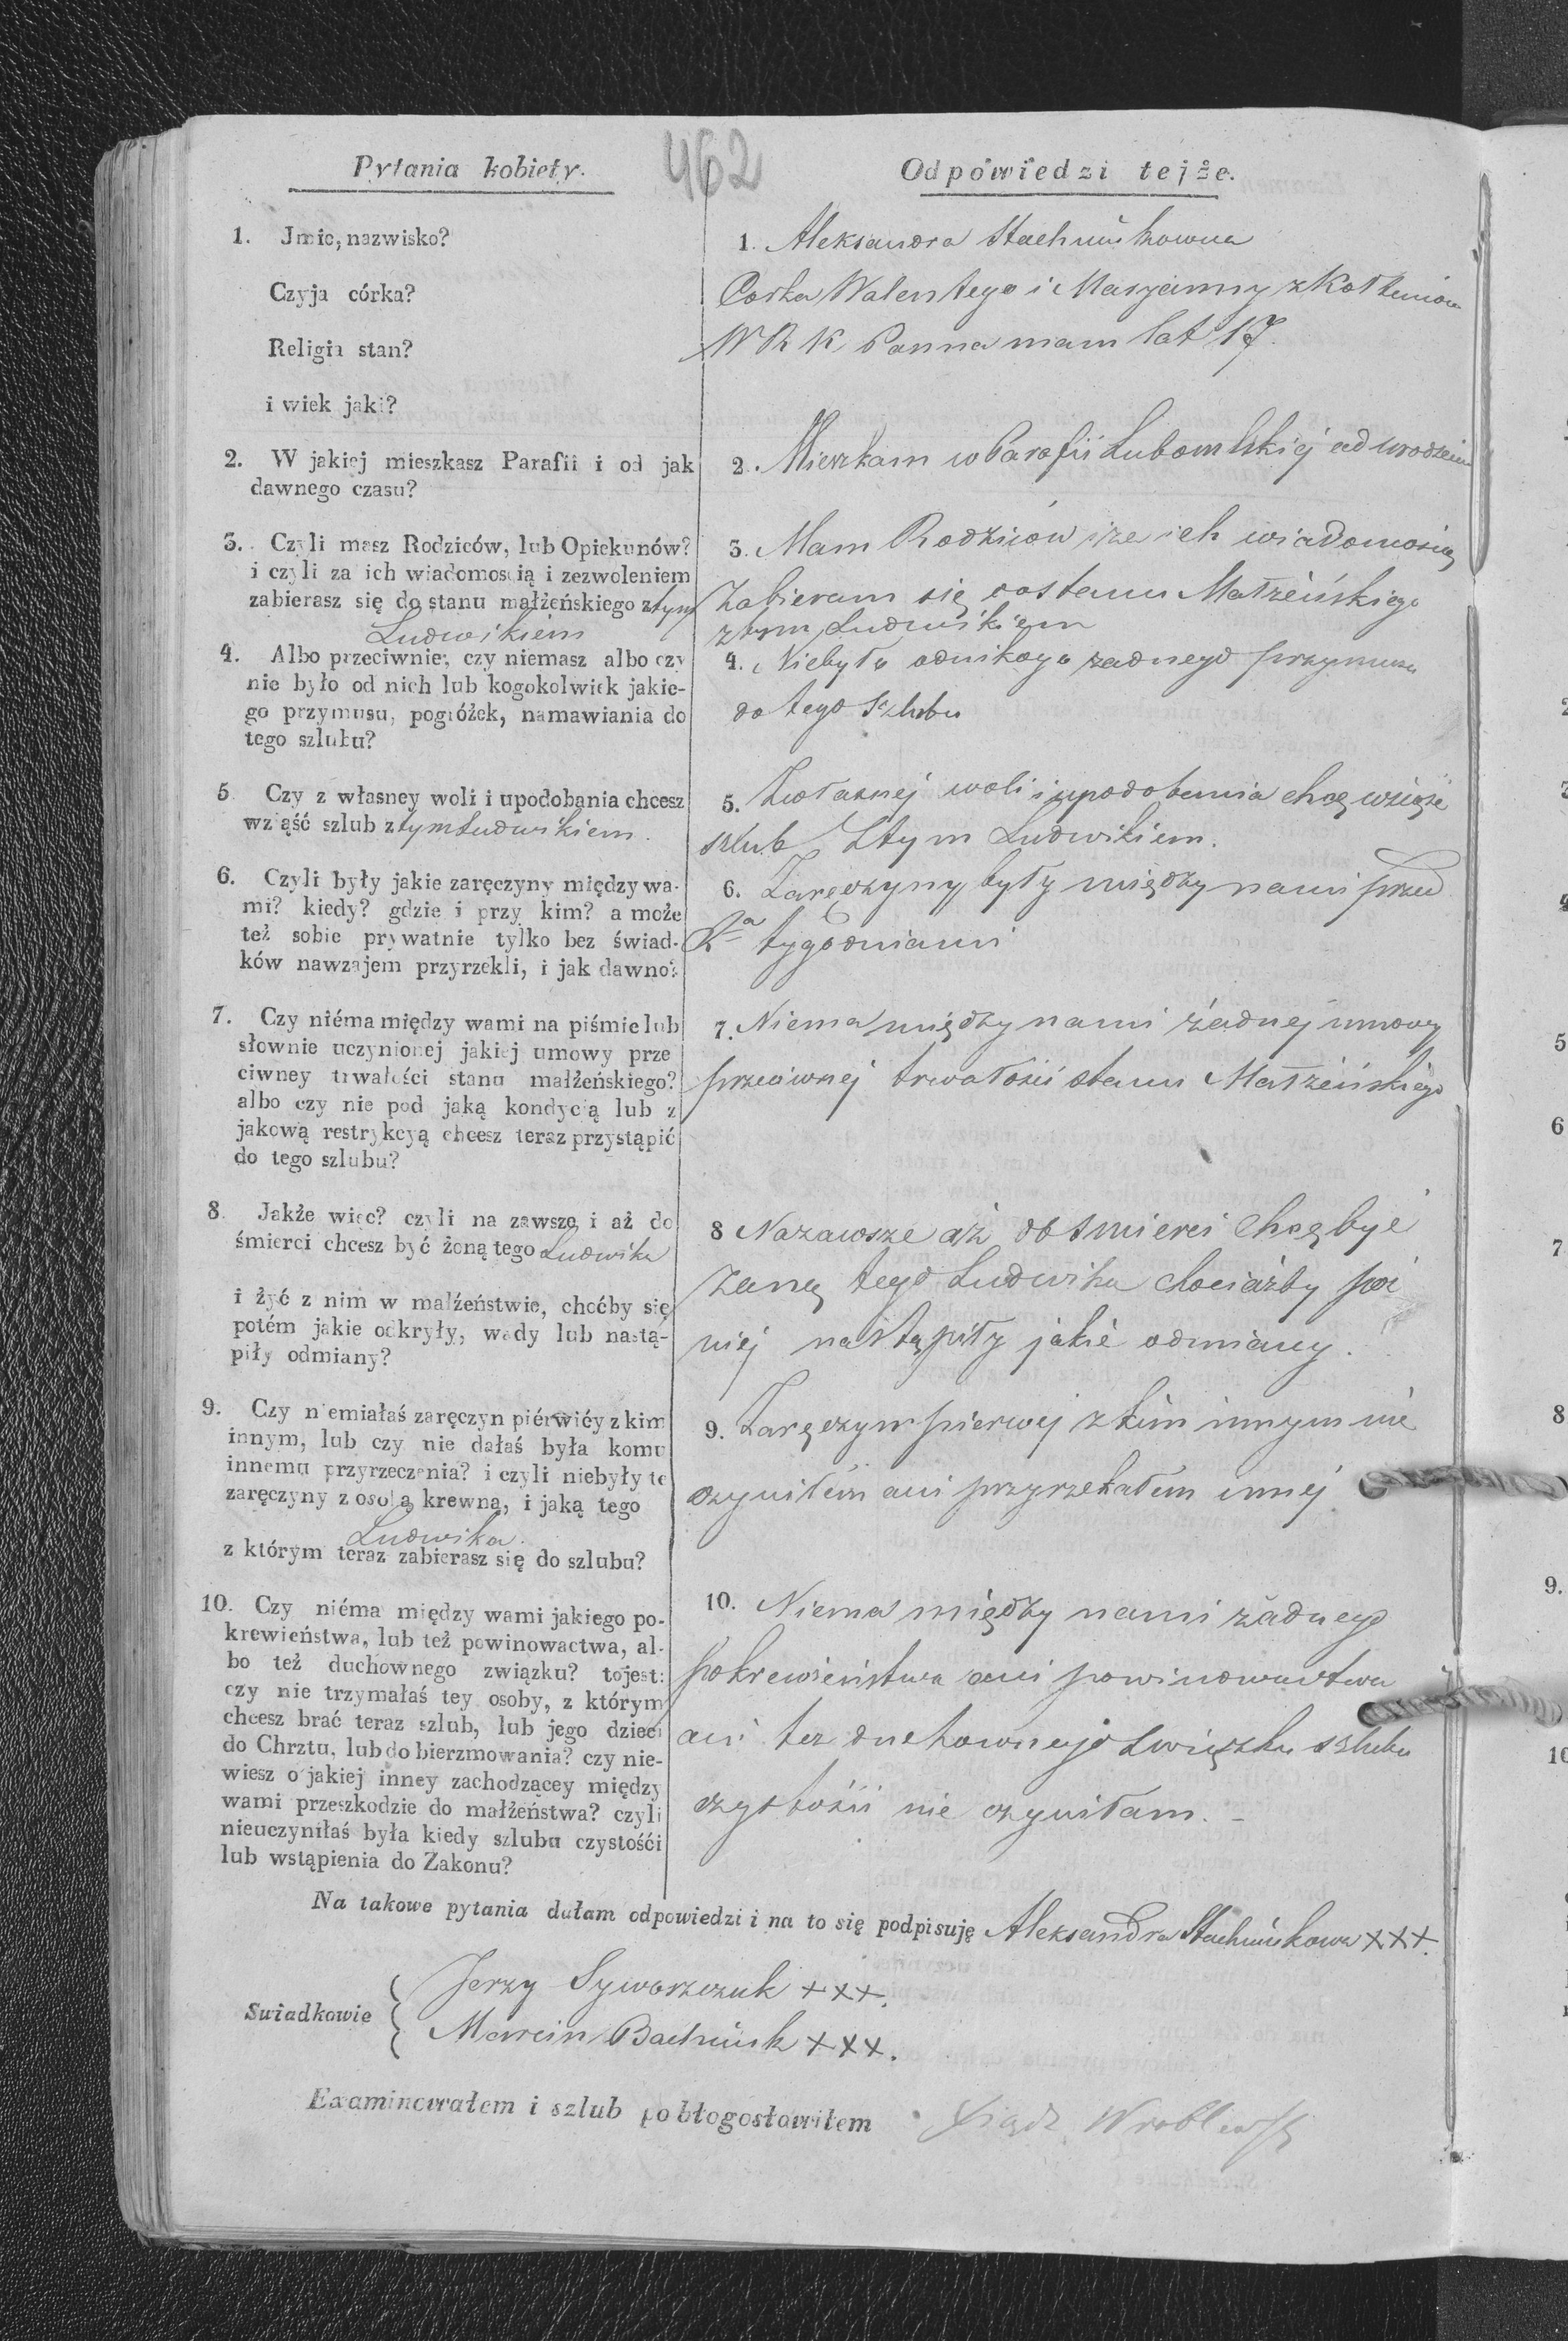 462
Pytania kobiety.
1. Jmie, nazwisko?
Czyja córka?
Religia stan?
i wiek jaki?
2. W jakiej mieszkasz Parafii i od jak
dawnego czasu?
3. Czyli masz Rodziców, lub Opiekunów?
i czyli za ich wiadomoscią i zezwoleniem
zabierasz się do stanu małżeńskiego z tym
Ludwikiem
4. Albo przeciwnie, czy niemasz albo czy
nie było od nich lub kogokolwiek jakie-
go przymusu, pogróżek, namawiania do
tego szlubu?
5 Czy z własney woli i upodobania chcesz
wziąść szlub z tym Ludwikiem.
6. Czyli były jakie zaręczyny między wa-
mi? kiedy? gdzie i przy kim? a może
też sobie prywatnie tylko bez świad-
ków nawzajem przyrzekli, i jak dawno?
7. Czy niéma między wami na piśmie lub
słownie uczynionej jakiej umowy prze
ciwney trwałości stanu małżeńskiego?
albo czy nie pod jaką kondycią lub z
jakową restrykcyą chcesz teraz przystąpić
do tego szlubu?
8. Jakże więc? czyli na zawsze i aż do
śmierci chcesz być żoną tego Ludwika
i żyć z nim w małżeństwie, choćby się
potém jakie odkryły, wady lub nastą-
piły odmiany?
9. Czy niemiałaś zaręczyn piérwićy z kim
innym, lub czy nie dałaś była komu
innemu przyrzeczenia? i czyli niebyły te
zaręczyny z osobą krewną, i jaką tego
Ludwika.
z którym teraz zabierasz się do szlubu?
10. Czy niéma między wami jakiego po-
krewieństwa, lub też powinowactwa, al-
bo też duchownego związku? tojest:
czy nie trzymałaś tey osoby, z którym
chcesz brać teraz szlub, lub jego dzieci
do Chrztu, lub do bierzmowania? czy nie-
wiesz o jakiej inney zachodzącey między
wami przeszkodzie do małżeństwa? czyli
nieuczyniłaś była kiedy szlubu czystośći
lub wstąpienia do Zakonu?
Odpowiedzi tejże.
1. Aleksandra Stachniukowna
Corka Walentego i Maryanny z
W R K Panna mam lat 17.
2. Mieszkam w Parafii Lubomlskiej od urodzenia
3. Mam Rodziców i za ich wiadomosią
Zabieram się do stanu Małżeńskiego
z tym Ludwikiem
4. Niebyło od nikogo zadnego przymusu
do tego szlubu
5. Z własnej woli i upodobania chcę wziąść
szlub Z tym Ludwikiem.
6. Zaręczyny były między nami przed
2a tygodniami
7. Niema między nami żadnej umowy
przeciwnej trwałości stanu Małżeńskiego
8 Nazawsze aż do smierci chcę być
żoną tego Ludwika chociażby poź
niej nastąpiły jakie odmiany.
9. Zaręczyn pierwej z kim innym nie
czyniłem ani przyrzekałem innej
10. Niema między nami żadnego
pokrewieństwa ani powinowactwa
ani tez duchownego związku szlubu
czystości nie czyniłam. -
Na takowe pytania dałam odpowiedzi i na to się podpisuję Aleksandra Stachniukowa XXX.
Swiadkowie
Jerzy Syworszczuk +++.
Marcin Bachniuk XXX.
Examinowałem i szlub pobłogosławiłem Xiądz Wroblewski